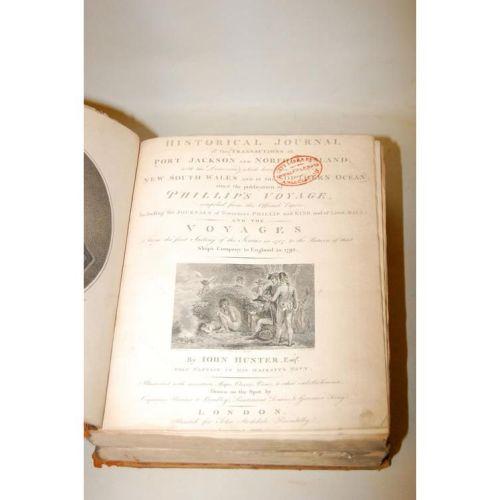 HISTORICAL JOURNAL
of the TRANSACTIONS at
PORT JACKSON AND NORFOLK ISLAND,
with the Discoveries which have
NEW SOUTH WALES AND IN THE SOUTHERN OCEAN,
since the publication of
PHILLIP'S VOYAGE,
compiled from the Official Papers;
Including the JOURNALS of Governors PHILLIP and KING, and of Lieut. BALL;
AND THE
VOYAGES
from the first Sailing of the Sirius in 1787, to the Return of that
Ship's Company to England in 1792.
By JOHN HUNTER, Esqr.
POST CAPTAIN IN HIS MAJESTY'S NAVY.
Illustrated with seventeen Maps, Charts, Views, & other embellishments,
Drawn on the Spot by
Captains Hunter & Bradley, Lieutenant Dawes, & Governor King.
LONDON.
Printed for John Stockdale, Piccadilly